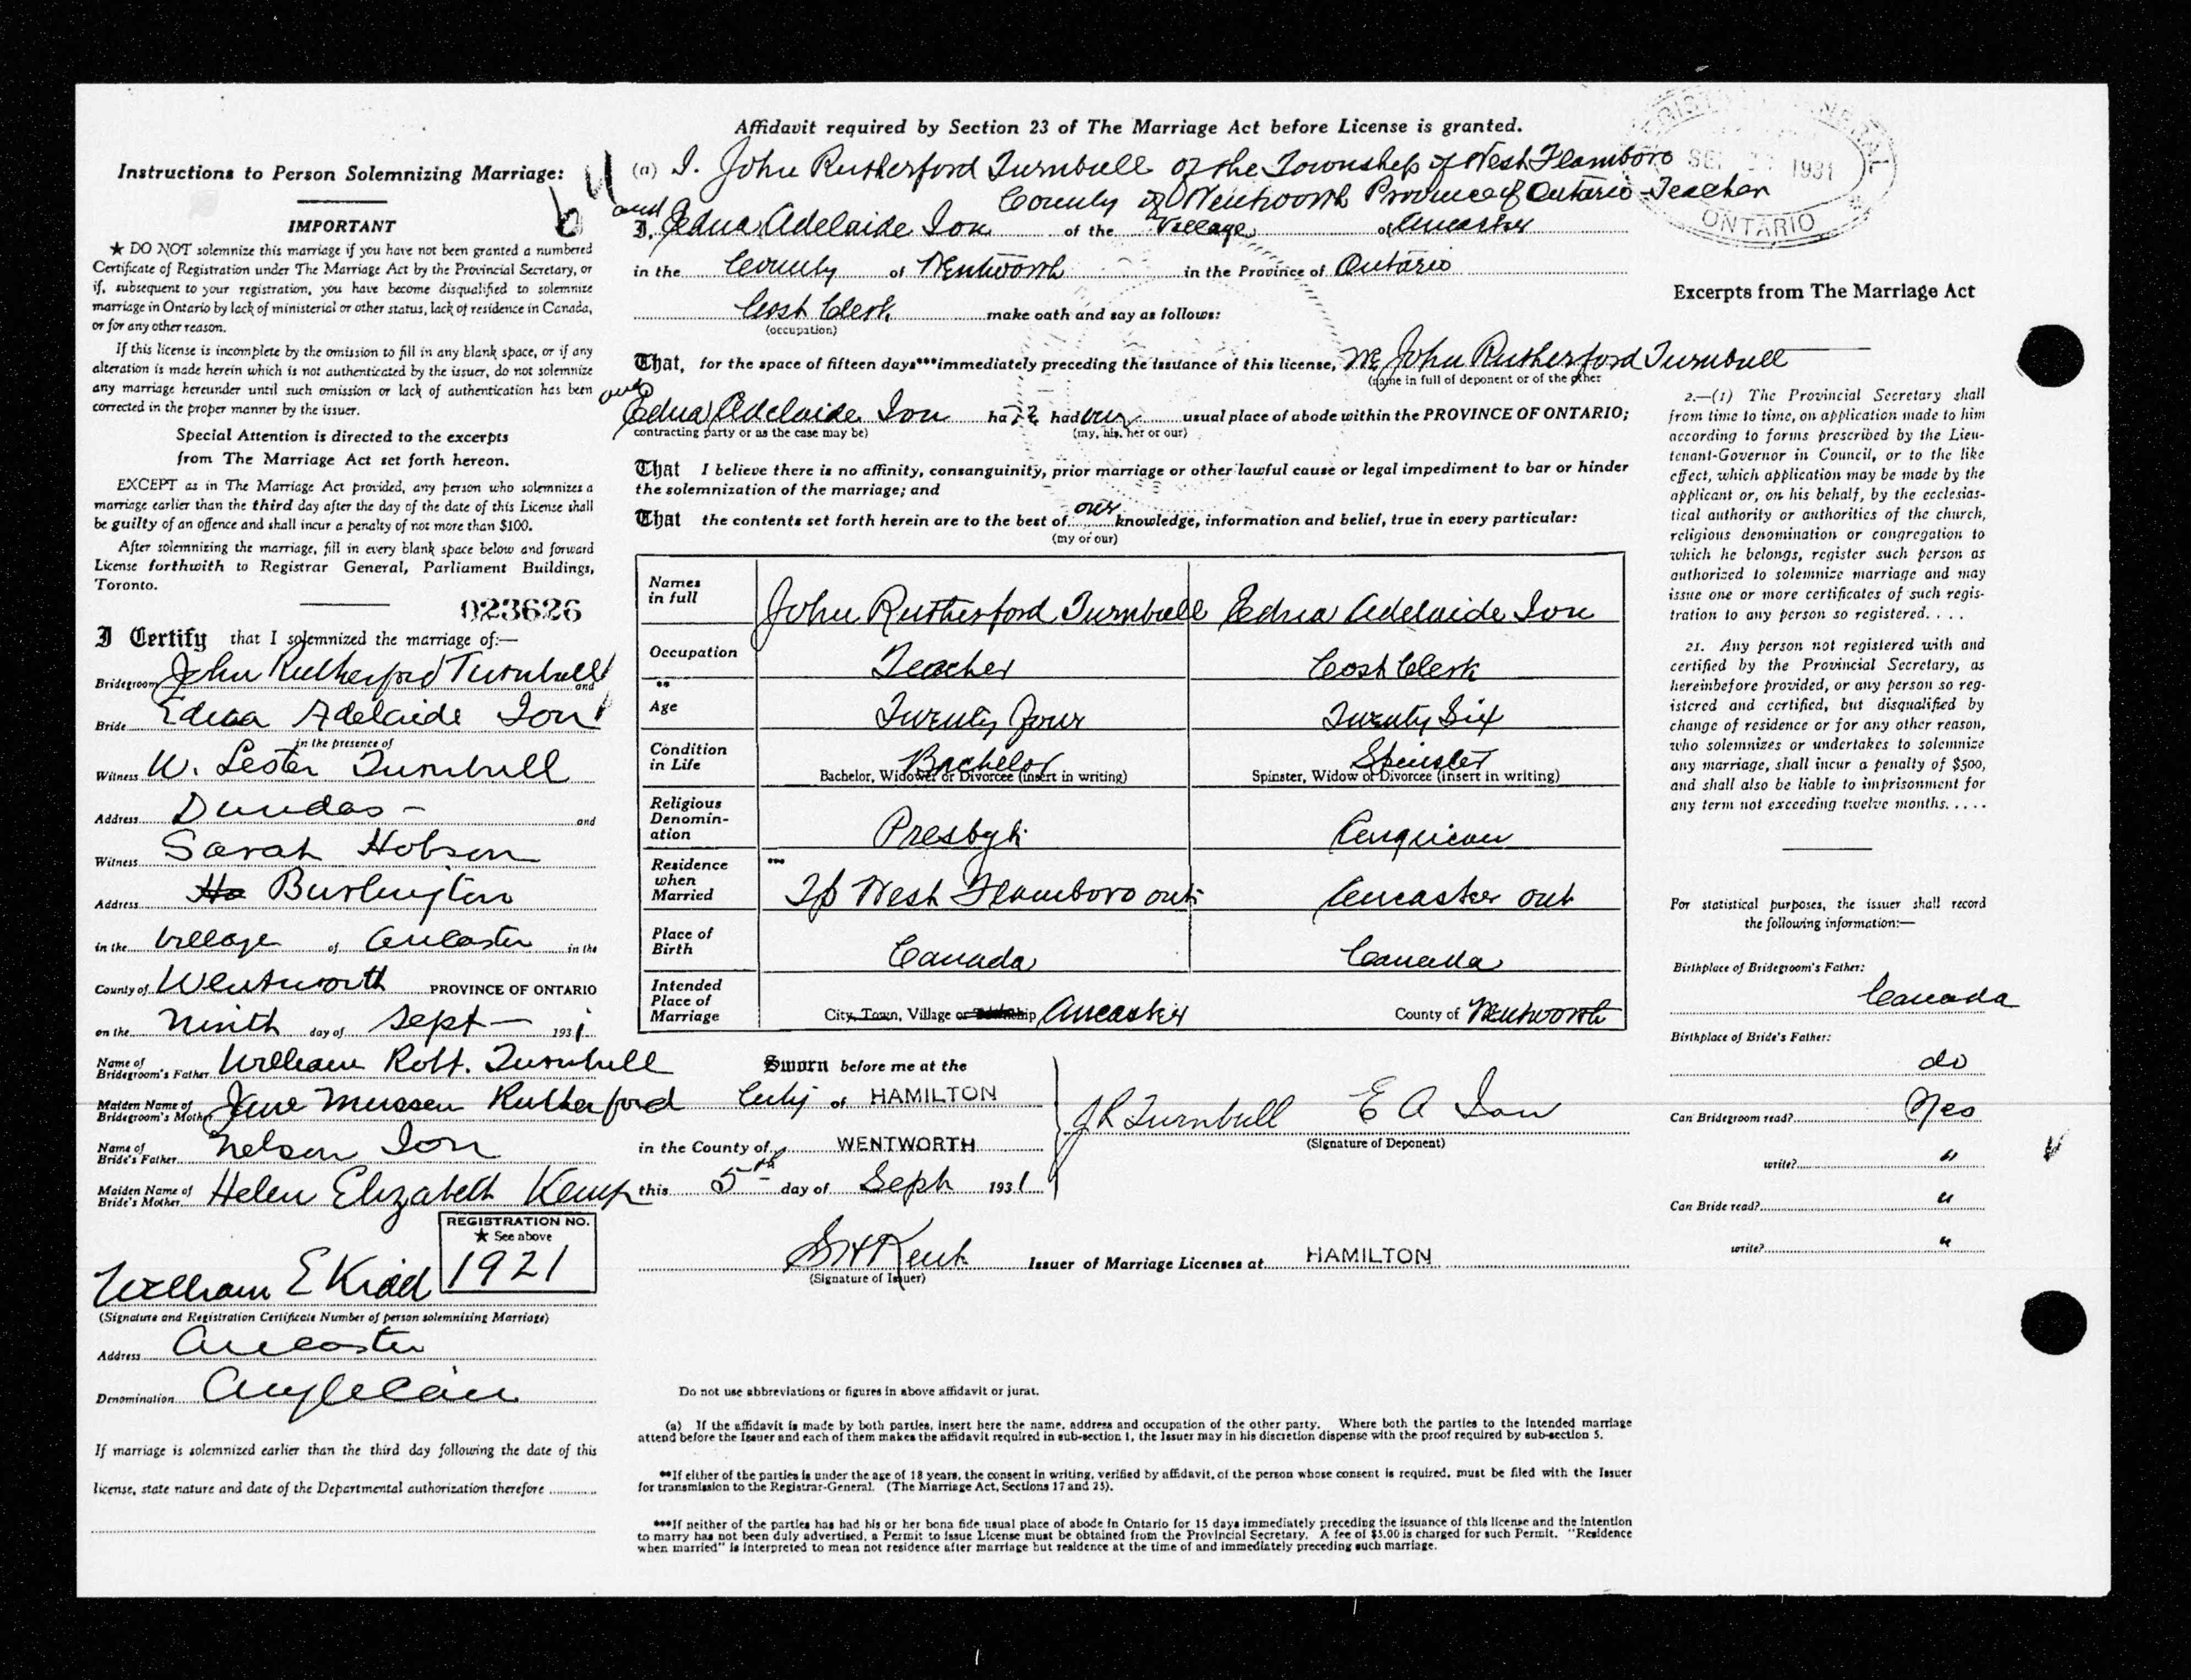 Instructions to Person Solemnizing Marriage:
IMPORTANT
★ DO NOT solemnize this marriage if you have not been granted a numbered
Certificate of Registration under The Marriage Act by the Provincial Secretary, or
if, subsequent to your registration, you have become disqualified to solemnize
marriage in Ontario by lack of ministerial or other status, lack of residence in Canada,
or for any other reason.
If this license is incomplete by the omission to fill in any blank space, or if any
alteration is made herein which is not authenticated by the issuer, do not solemnize
any marriage hereunder until such omission or lack of authentication has been
corrected in the proper manner by the issuer.
Special Attention is directed to the excerpts
from The Marriage Act set forth hereon.
EXCEPT as in The Marriage Act provided, any person who solemnizes a
marriage earlier than the third day after the day of the date of this License shall
be guilty of an offence and shall incur a penalty of not more than $100.
After solemnizing the marriage, fill in every blank space below and forward
License forthwith to Registrar General, Parliament Buildings,
Toronto.
023626
I Certify that I solemnized the marriage of:—
Bridegroom John Rutherford Turnbull and
Bride Edna Adelaide Ion
in the presence of
Witness W. Lester Turnbull
Address Dundas - and
Witness Sarah Hobson
Address Burlington
in the Village of Ancaster in the
County of Wentworth PROVINCE OF ONTARIO
on the ninth day of Sept 1931
Name of Bridegroom's Father William Robt. Turnbull
Maiden Name of Bridegroom's Mother Jane Mussen Rutherford
Name of Bride's Father Nelson Ion
Maiden Name of Bride's Mother Helen Elizabeth Kemp
REGISTRATION NO.
★ See above
1921
William E Kidd
(Signature and Registration Certificate Number of person solemnizing Marriage)
Address Ancaster
Denomination Anglican
If marriage is solemnized earlier than the third day following the date of this
license, state nature and date of the Departmental authorization therefore
Affidavit required by Section 23 of The Marriage Act before License is granted.
(a) I. John Rutherford Turnbull of the Township of West Flamboro
County of Wentworth Province of Ontario Teacher
and
I, Edna Adelaide Ion of the Village of Ancaster
in the County of Wentworth in the Province of Ontario
Cost Clerk make oath and say as follows:
(occupation)
That, for the space of fifteen days***immediately preceding the issuance of this license, We John Rutherford Turnbull
(name in full of deponent or of the other
and
Edna Adelaide Ion have had our usual place of abode within the PROVINCE OF ONTARIO;
contracting party or as the case may be) (my, his, her or our)
That I believe there is no affinity, consanguinity, prior marriage or other lawful cause or legal impediment to bar or hinder
the solemnization of the marriage; and
That the contents set forth herein are to the best of our knowledge, information and belief, true in every particular:
(my or our)
Names in full John Rutherford Turnbull Edna Adelaide Ion
Occupation Teacher Cost Clerk
** Age Twenty Four Twenty Six
Condition in Life Bachelor Spinster
Bachelor, Widower or Divorcee (insert in writing) Spinster, Widow or Divorcee (insert in writing)
Religious Denomination Presbyt Anglican
Residence when Married *** Tp West Flamboro Ont Ancaster Ont
Place of Birth Canada Canada
Intended Place of Marriage City, Town, Village or Township Ancaster County of Wentworth
Sworn before me at the
City of HAMILTON
in the County of WENTWORTH
this 5th day of Sept 1931
J R Turnbull E A Ion
(Signature of Deponent)
S H Kent Issuer of Marriage Licenses at HAMILTON
(Signature of Issuer)
Do not use abbreviations or figures in above affidavit or jurat.
(a) If the affidavit is made by both parties, insert here the name, address and occupation of the other party. Where both the parties to the intended marriage
attend before the Issuer and each of them makes the affidavit required in sub-section 1, the Issuer may in his discretion dispense with the proof required by sub-section 5.
**If either of the parties is under the age of 18 years, the consent in writing, verified by affidavit, of the person whose consent is required, must be filed with the Issuer
for transmission to the Registrar-General. (The Marriage Act, Sections 17 and 23).
***If neither of the parties has had his or her bona fide usual place of abode in Ontario for 15 days immediately preceding the issuance of this license and the intention
to marry has not been duly advertised, a Permit to issue License must be obtained from the Provincial Secretary. A fee of $5.00 is charged for such Permit. "Residence
when married" is interpreted to mean not residence after marriage but residence at the time of and immediately preceding such marriage.
1931
ONTARIO
Excerpts from The Marriage Act
2.—(1) The Provincial Secretary shall
from time to time, on application made to him
according to forms prescribed by the Lieu-
tenant-Governor in Council, or to the like
effect, which application may be made by the
applicant or, on his behalf, by the ecclesias-
tical authority or authorities of the church,
religious denomination or congregation to
which he belongs, register such person as
authorized to solemnize marriage and may
issue one or more certificates of such regis-
tration to any person so registered. . . .
21. Any person not registered with and
certified by the Provincial Secretary, as
hereinbefore provided, or any person so reg-
istered and certified, but disqualified by
change of residence or for any other reason,
who solemnizes or undertakes to solemnize
any marriage, shall incur a penalty of $500,
and shall also be liable to imprisonment for
any term not exceeding twelve months. . . . .
For statistical purposes, the issuer shall record
the following information:—
Birthplace of Bridegroom's Father:
Canada
Birthplace of Bride's Father:
do
Can Bridegroom read? Yes
write? "
Can Bride read? "
write? "